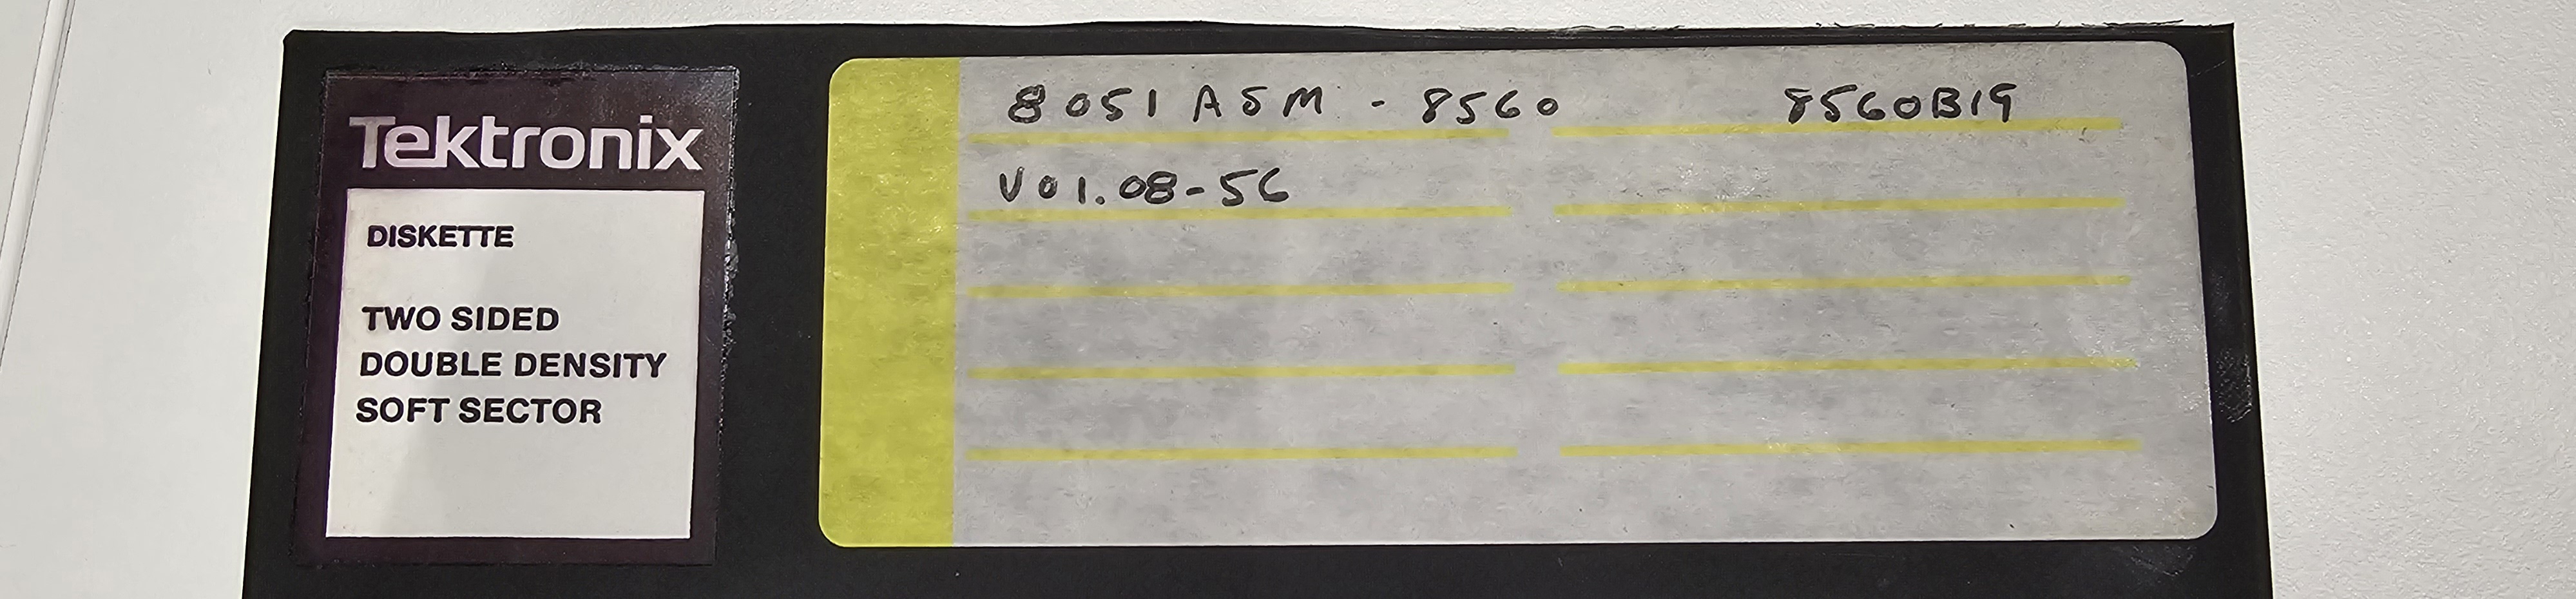 Tektronix
DISKETTE
TWO SIDED
DOUBLE DENSITY
SOFT SECTOR
8051 ASM - 8560 8560B19
V01.08-56